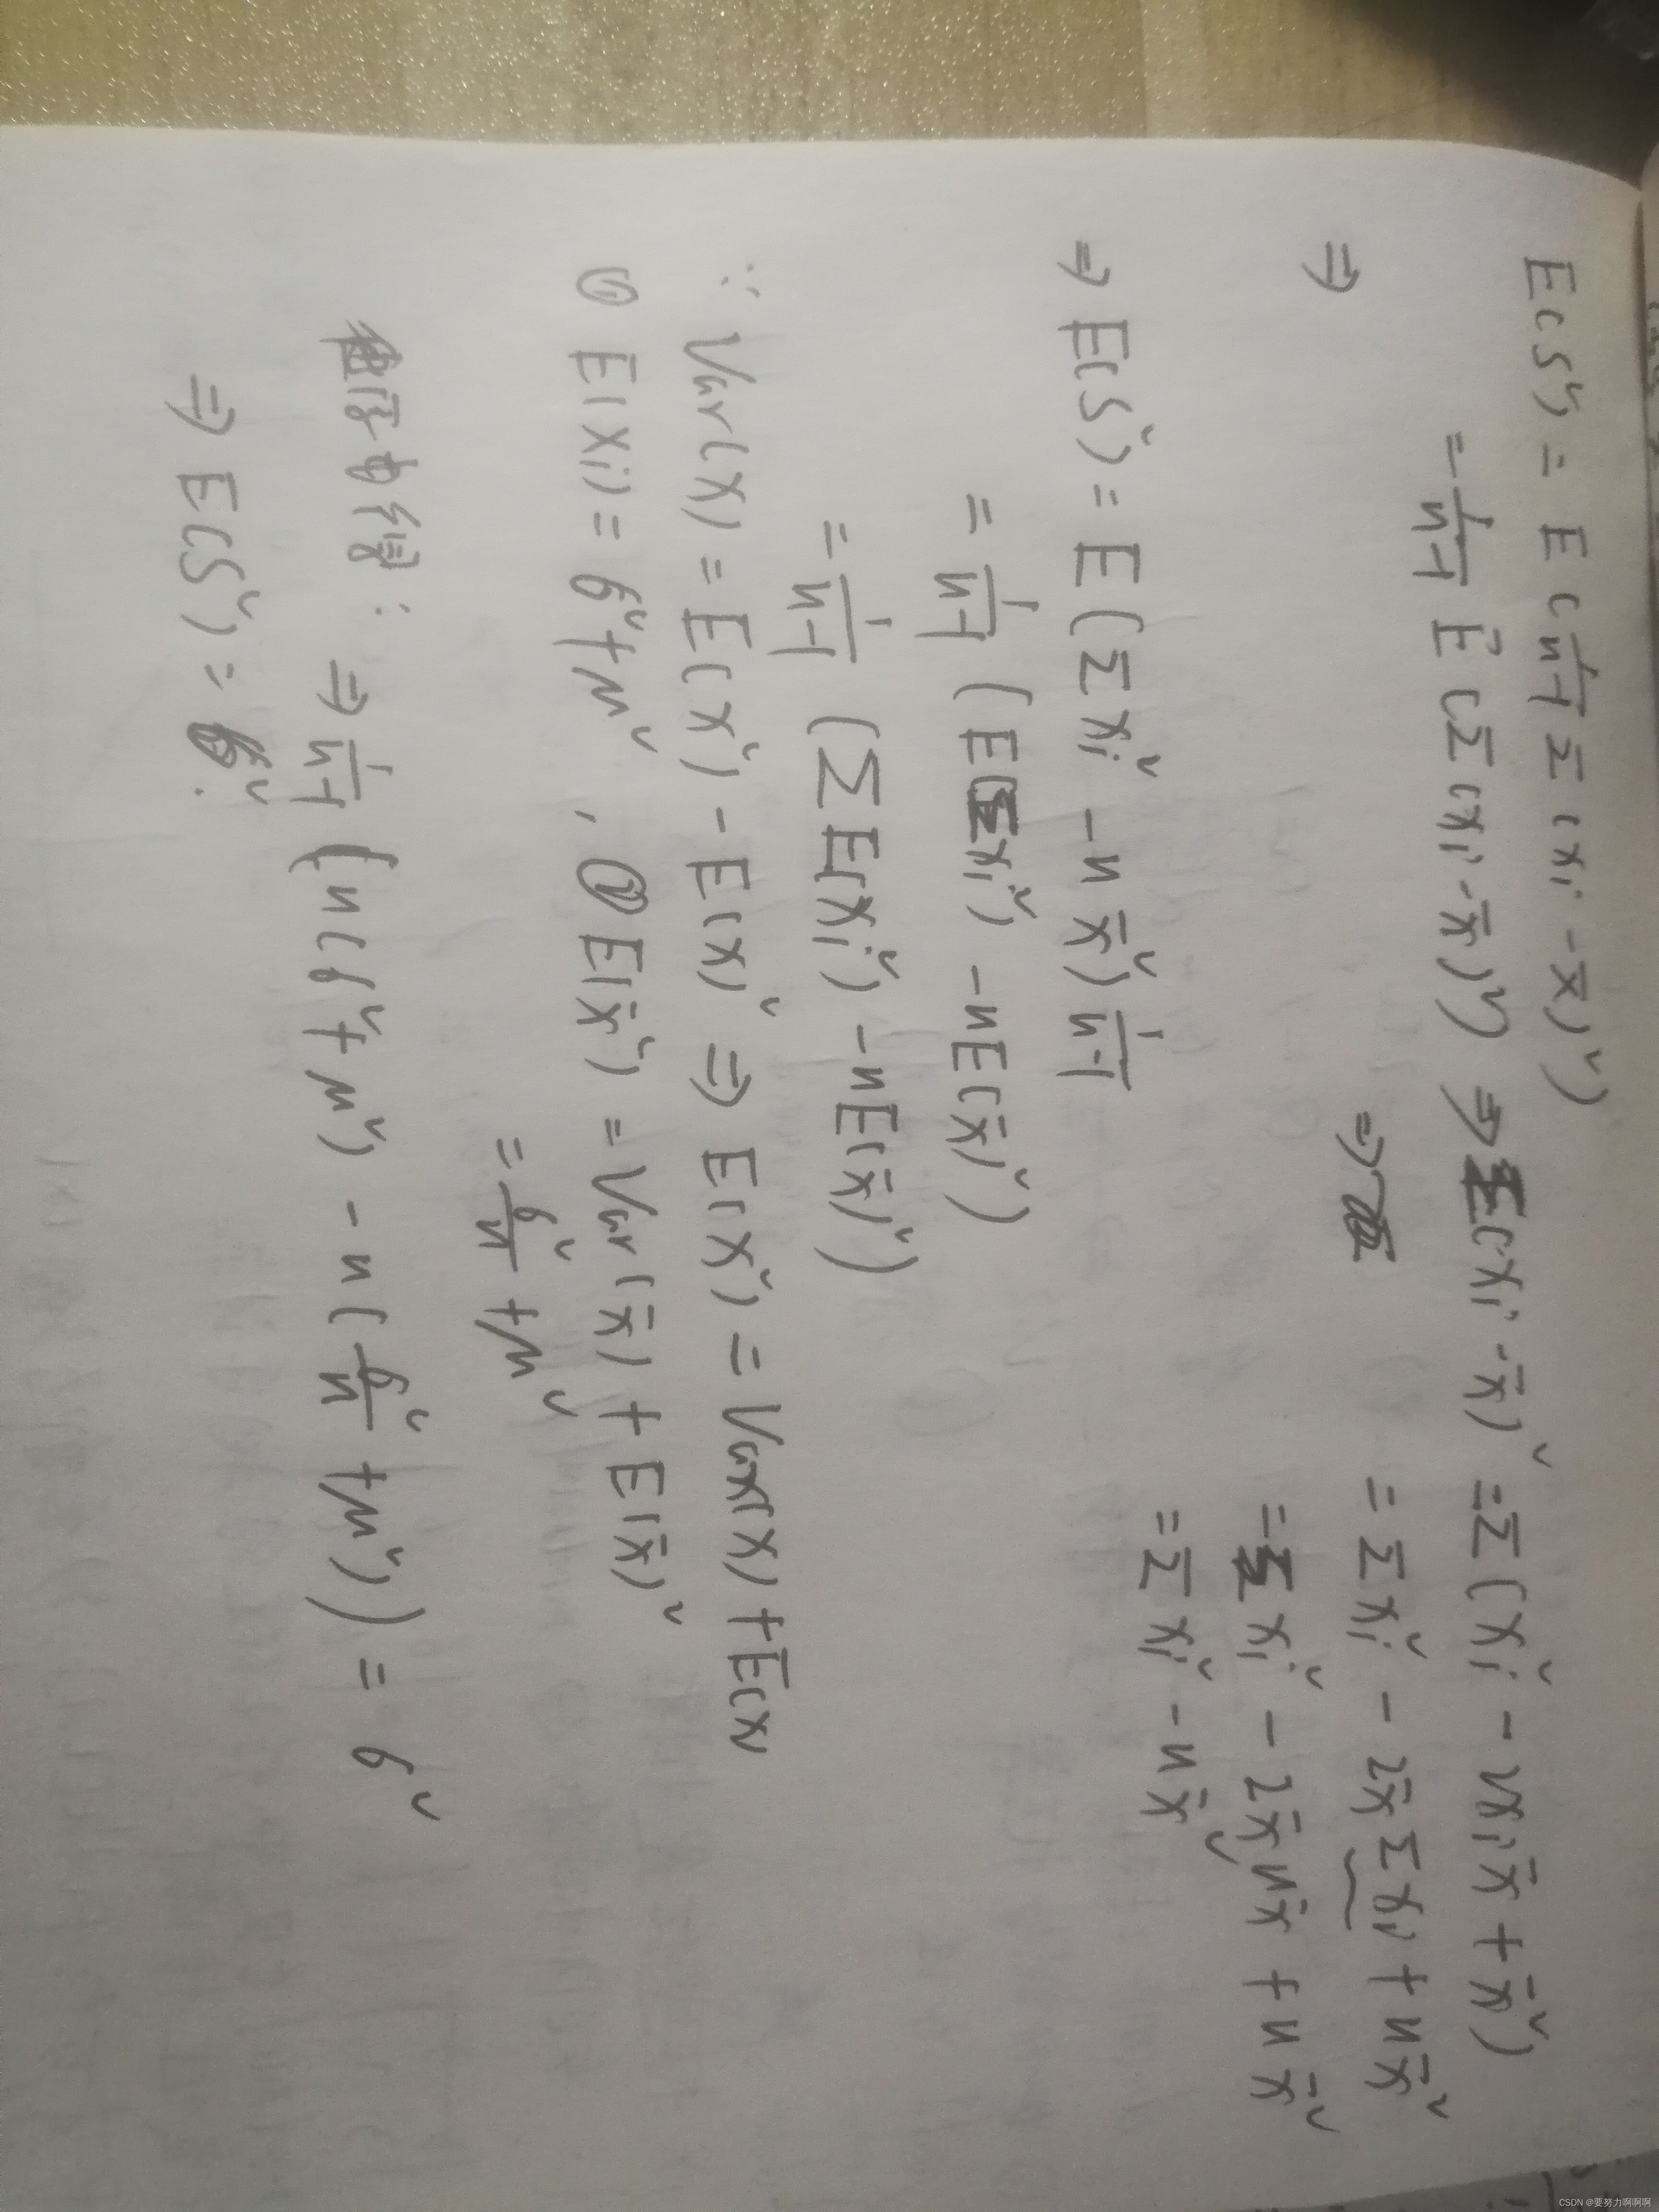 E(S²) = E(1/(n-1) Σ(xi - x̄)²)
= 1/(n-1) E(Σ(xi - x̄)²) ⇒ Σ(xi - x̄)² = Σ(xi² - 2xi x̄ + x̄²)
⇒ ⇒ = Σxi² - 2x̄Σxi + nx̄²
= Σxi² - 2x̄nx̄ + nx̄²
= Σxi² - nx̄²
⇒ E(S²) = E(Σxi² - nx̄²) 1/(n-1)
= 1/(n-1) (E(Σxi²) - nE(x̄)²)
= 1/(n-1) (ΣE(xi²) - nE(x̄)²)
∵ Var(x) = E(x²) - E(x)² ⇒ E(x²) = Var(x) + E(x)
① E(xi) = σ² + μ² , ② E(x̄²) = Var(x̄) + E(x̄)²
= σ²/n + μ²
得: ⇒ 1/(n-1) (n(σ² + μ²) - n(σ²/n + μ²)) = σ²
⇒ E(S²) = σ².
CSDN @要努力啊啊啊